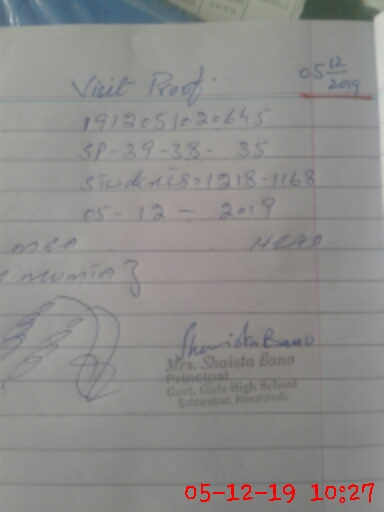 Visit Proof.
05 12
2019
1912051020645
SP-39-38- 35
Students:1218-1168
05-12-2019
MEA HEAD
Mumtaz
Shaista Bano
Mrs. Shaista Bano
Principal
Govt. Girls High School
Rawalpindi.
05-12-19 10:27